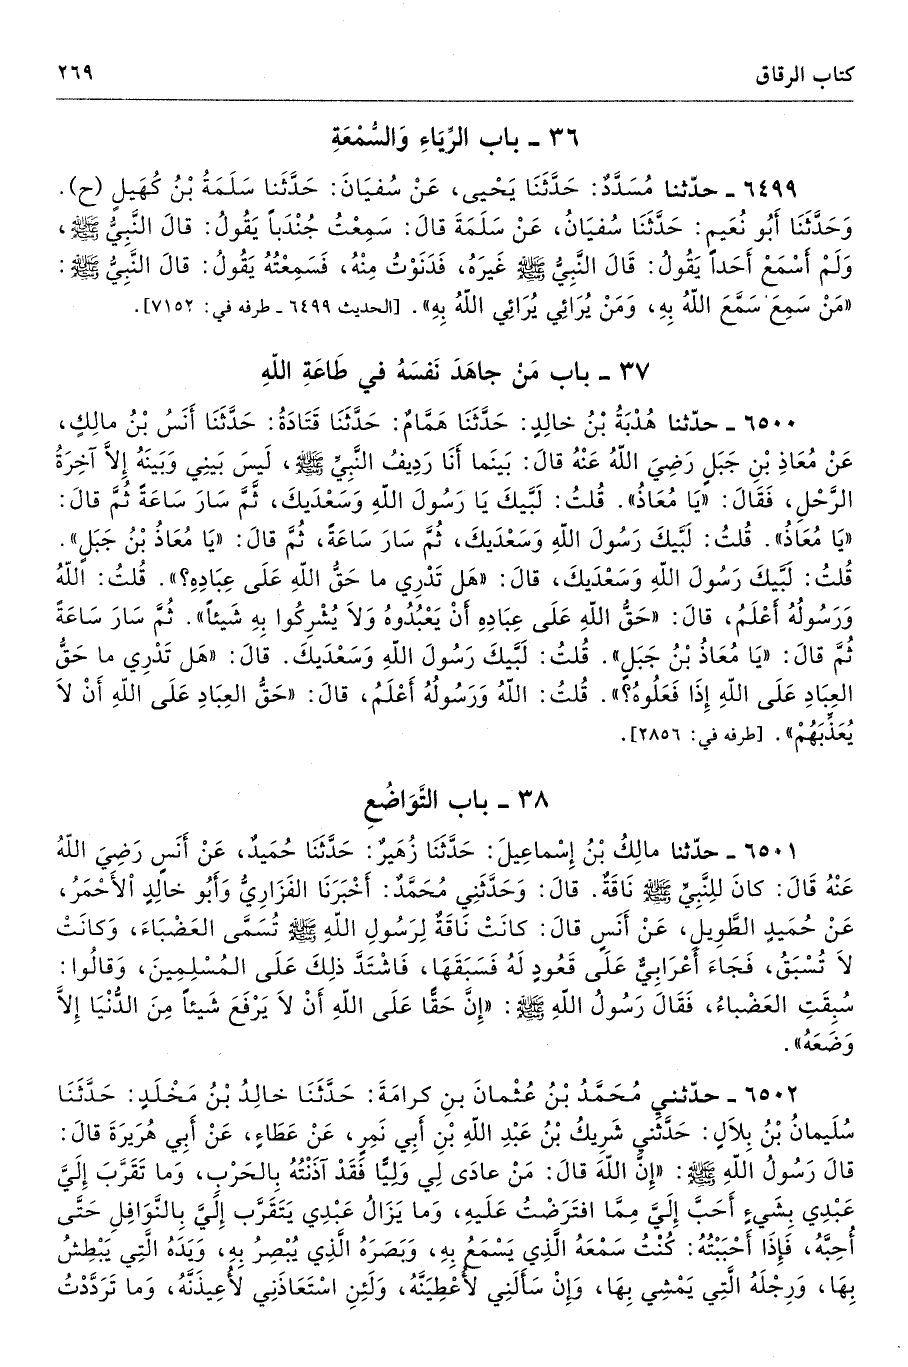 كتاب الرقاق ٢٦٩
٣٦ ـ باب الرِّيَاءِ وَالسُّمْعَةِ
٦٤٩٩ ـ حدّثنا مُسَدَّدٌ: حَدَّثَنَا يَحْيى، عَنْ سُفيَانَ: حَدَّثَنا سَلَمَةُ بْنُ كُهَيلٍ (ح).
وَحَدَّثَنَا أَبُو نُعَيمٍ: حَدَّثَنَا سُفيَانُ، عَنْ سَلَمَةَ قالَ: سَمِعْتُ جُنْدَباً يَقُولُ: قالَ النَّبِيُّ ﷺ،
وَلَمْ أَسْمَعْ أَحَداً يَقُولُ: قَالَ النَّبِيُّ ﷺ غَيرَهُ، فَدَنَوْتُ مِنْهُ، فَسَمِعْتُهُ يَقُولُ: قالَ النَّبِيُّ ﷺ:
«مَنْ سَمعَ سَمَّعَ اللّهُ بِهِ، وَمَنْ يُرَائِي يُرَائِي اللّهُ بِهِ». [الحديث ٦٤٩٩ ـ طرفه في: ٧١٥٢].
٣٧ ـ باب مَنْ جاهَدَ نَفسَهُ في طَاعَةِ اللّهِ
٦٥٠٠ ـ حدّثنا هُدْبَةُ بْنُ خالِدٍ: حَدَّثَنَا هَمَّامٌ: حَدَّثَنَا قَتَادَةُ: حَدَّثَنَا أَنَسُ بْنُ مالِكٍ،
عَنْ مُعَاذِ بْنِ جَبَلٍ رَضِيَ اللّهُ عَنْهُ قالَ: بَينَما أَنَا رَدِيفُ النَّبِيِّ ﷺ، لَيسَ بَينِي وَبَينَهُ إِلاَّ آخِرَةُ
الرَّحْلِ، فَقَالَ: «يَا مُعَاذُ». قُلتُ: لَبَّيكَ يَا رَسُولَ اللّهِ وَسَعْدَيكَ، ثَّمَ سَارَ سَاعَةً ثُمَّ قالَ:
«يَا مُعَاذُ». قُلتُ: لَبَّيكَ رَسُولَ اللّهِ وَسَعْدَيكَ، ثُمَّ سَارَ سَاعَةً، ثُمَّ قالَ: «يَا مُعَاذُ بْنُ جَبَلٍ».
قُلتُ: لَبَّيكَ رَسُولَ اللّهِ وَسَعْدَيكَ، قالَ: «هَل تَدْرِي ما حَقُّ اللّهِ عَلَى عِبَادِهِ؟». قُلتُ: اللّهُ
وَرَسُولُهُ أَعْلَمُ، قالَ: «حَقُّ اللّهِ عَلَى عِبَادِهِ أَنْ يَعْبُدُوهُ وَلاَ يُشْرِكُوا بِهِ شَيئاً». ثُمَّ سَارَ سَاعَةً
ثُمَّ قالَ: «يَا مُعَاذُ بْنُ جَبَلٍ». قُلتُ: لَبَّيكَ رَسُولَ اللّهِ وَسَعْدَيكَ. قالَ: «هَل تَدْرِي ما حَقُّ
العِبَادِ عَلَى اللّهِ إِذَا فَعَلُوهُ؟». قُلتُ: اللّهُ وَرَسُولُهُ أَعْلَمُ، قالَ: «حَقُّ العِبَادِ عَلَى اللّهِ أَنْ لاَ
يُعَذِّبَهُمْ». [طرفه في: ٢٨٥٦].
٣٨ ـ باب التَّوَاضُعِ
٦٥٠١ ـ حدّثنا مالِكُ بْنُ إِسْماعِيلَ: حَدَّثَنَا زُهَيرٌ: حَدَّثَنَا حُمَيدٌ، عَنْ أَنَسٍ رَضِيَ اللّهُ
عَنْهُ قَالَ: كانَ لِلنَّبِيِّ ﷺ نَاقَةٌ. قالَ: وَحَدَّثَنِي مُحَمَّدٌ: أَخْبَرَنَا الفَزَارِيُّ وَأَبُو خالِدٍ الأَحْمَرُ،
عَنْ حُمَيدٍ الطَّوِيلِ، عَنْ أَنَسٍ قالَ: كانَتْ نَاقَةٌ لِرَسُولِ اللّهِ ﷺ تُسَمَّى العَضْبَاءَ، وَكانَتْ
لاَ تُسْبَقُ، فَجَاءَ أَعْرَابِيٌّ عَلَى قَعُودٍ لَهُ فَسَبَقَهَا، فَاشْتَدَّ ذلِكَ عَلَى المُسْلِمِينَ، وَقالُوا:
سُبِقَتِ العَضْباءُ، فَقَالَ رَسُولُ اللّهِ ﷺ: «إِنَّ حَقًّا عَلَى اللّهِ أَنْ لاَ يَرْفَعَ شَيئاً مِنَ الدُّنْيَا إِلاَّ
وَضَعَهُ».
٦٥٠٢ ـ حدّثني مُحَمَّدُ بْنُ عُثْمانَ بنِ كرامَةَ: حَدَّثَنَا خالِدُ بْنُ مَخْلَدٍ: حَدَّثَنَا
سُلَيمانُ بْنُ بِلاَلٍ: حَدَّثَنِي شَرِيكُ بْنُ عَبْدِ اللّهِ بْنِ أَبِي نَمِرٍ، عَنْ عَطَاءٍ، عَنْ أَبِي هُرَيرَةَ قالَ:
قالَ رَسُولُ اللّهِ ﷺ: «إِنَّ اللّهَ قالَ: مَنْ عادَى لِي وَلِيًّا فَقَدْ آذَنْتُهُ بِالحَرْبِ، وَما تَقَرَّبَ إِلَيَّ
عَبْدِي بِشَيءٍ أَحَبَّ إِلَيَّ مِمَّا افتَرَضْتُ عَلَيهِ، وَما يَزَالُ عَبْدِي يَتَقَرَّب إِلَيَّ بِالنَّوَافِلِ حَتَّى
أُحِبَّهُ، فَإِذَا أَحْبَبْتُهُ: كُنْتُ سَمْعَهُ الَّذِي يَسْمَعُ بِهِ، وَبَصَرَهُ الَّذِي يُبْصِرُ بِهِ، وَيَدَهُ الَّتِي يَبْطِشُ
بِهَا، وَرِجْلَهُ الَّتِي يَمْشِي بِهَا، وَإِنْ سَأَلَنِي لأُعْطِيَنَّهُ، وَلَئِنِ اسْتَعَاذَنِي لأُعِيذَنَّهُ، وَما تَرَدَّدْتُ